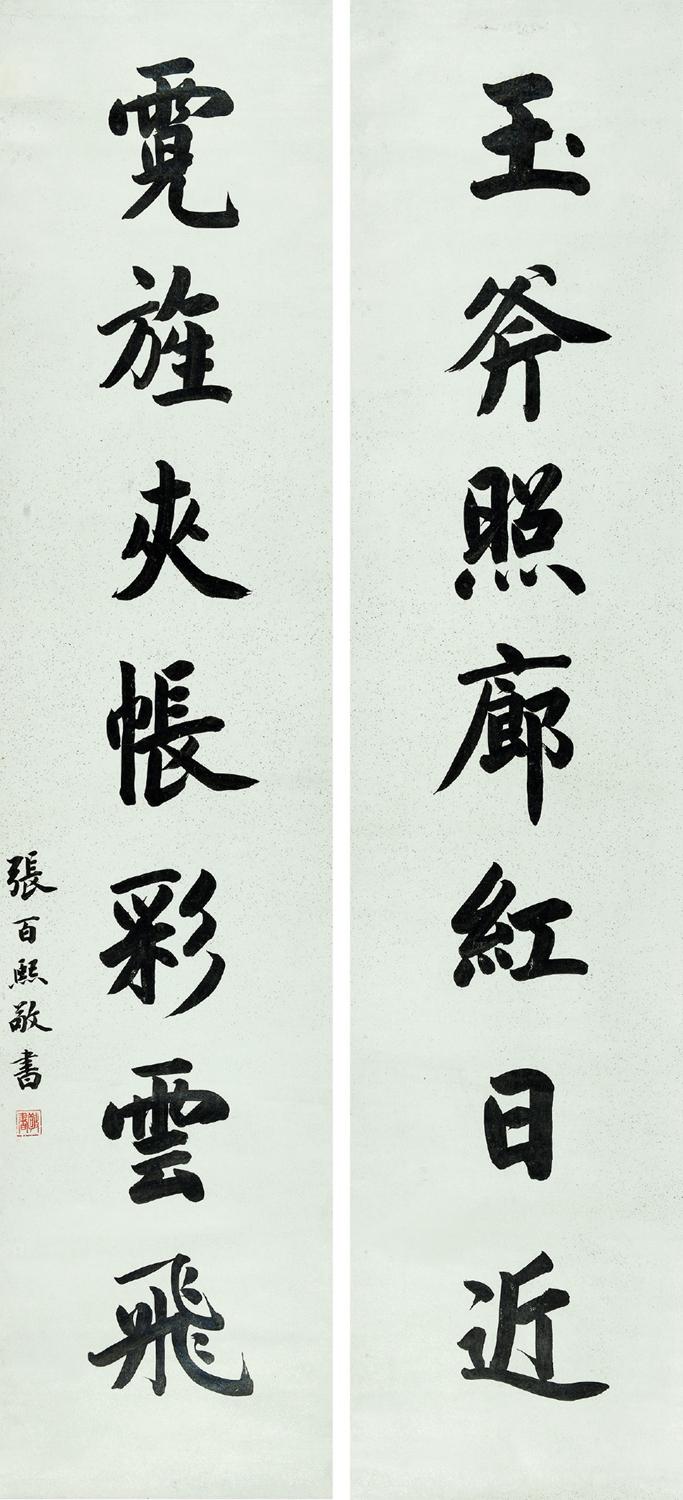 玉斧照廊紅日近
霓旌夾帳彩雲飛
張百熙敬書